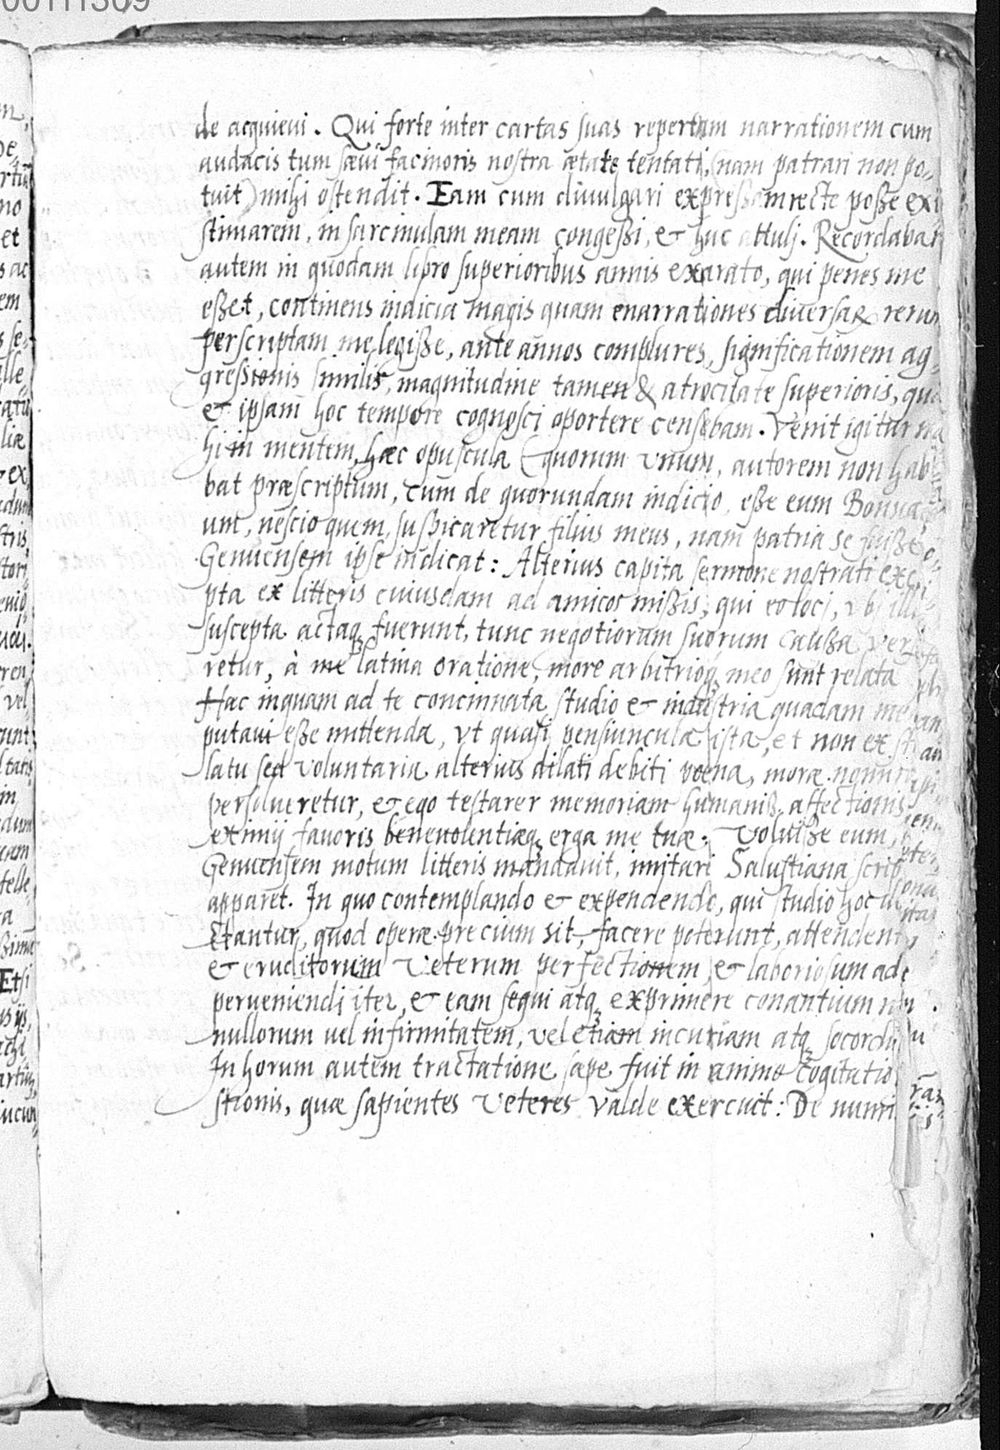 00111309
de acquieui. Qui forte inter cartas suas repertam narrationem cum
audacis tum sæui facinoris nostra ætate tentati, (nam patrari non po-
tuit) mihi ostendit. Eam cum diuulgari expreßam recte poße exi
stimarem, in sarcinulam meam congeßi, & huc attulj. Recordabar
autem in quodam libro superioribus annis exarato, qui penes me
eßet, continens indicia magis quam enarrationes diuersaꝝ rerum
perscriptam me legiße, ante annos complures, significationem ag-
greßionis similis, magnitudine tamen & atrocitate superioris, qua
& ipsam hoc tempore cognosci oportere censebam. Venit igitur
hi in mentem, hæc opuscula (quorum vnum, autorem non hab
bat præscriptum, cum de quorundam indicio, eße eum Bonua
unt, nescio quem, suspicaretur filius meus, nam patria se fuiße
Genuensem ipse indicat: Alterius capita sermone nostrati
pta ex litteris cuiusdam ad amicos mißis, qui eo loci, vbi
suscepta actaq fuerunt, tunc negotiorum suorum caußa
retur, à me latina oratione, more arbitrioq meo sunt relata
Hæc inquam ad te concinnata studio & industria quadam me
putaui eße mittenda, vt quasi pensiuncula ista, et non ex
latu sed voluntaria alterius dilati debiti poena, moræ
persolueretur, & ego testarer memoriam humaniß. affectionis
eximij fauoris beneuolentiæq erga me tuæ. Voluiße eum,
Genuensem motum litteris mandauit, imitari Salustiana
apparet. In quo contemplando & expendendo, qui studio hoc
ctantur, quod operæ precium sit, facere poterunt, attendent
& eruditorum Veterum perfectionem & laboriosum ad
perueniendi iter, & eam sequi atq exprimere conantium
nullorum vel infirmitatem, vel etiam incuriam atq socordi
In horum autem tractatione sæpe fuit in animo cogitatio
stionis, quæ sapientes Veteres valde exercuit: De